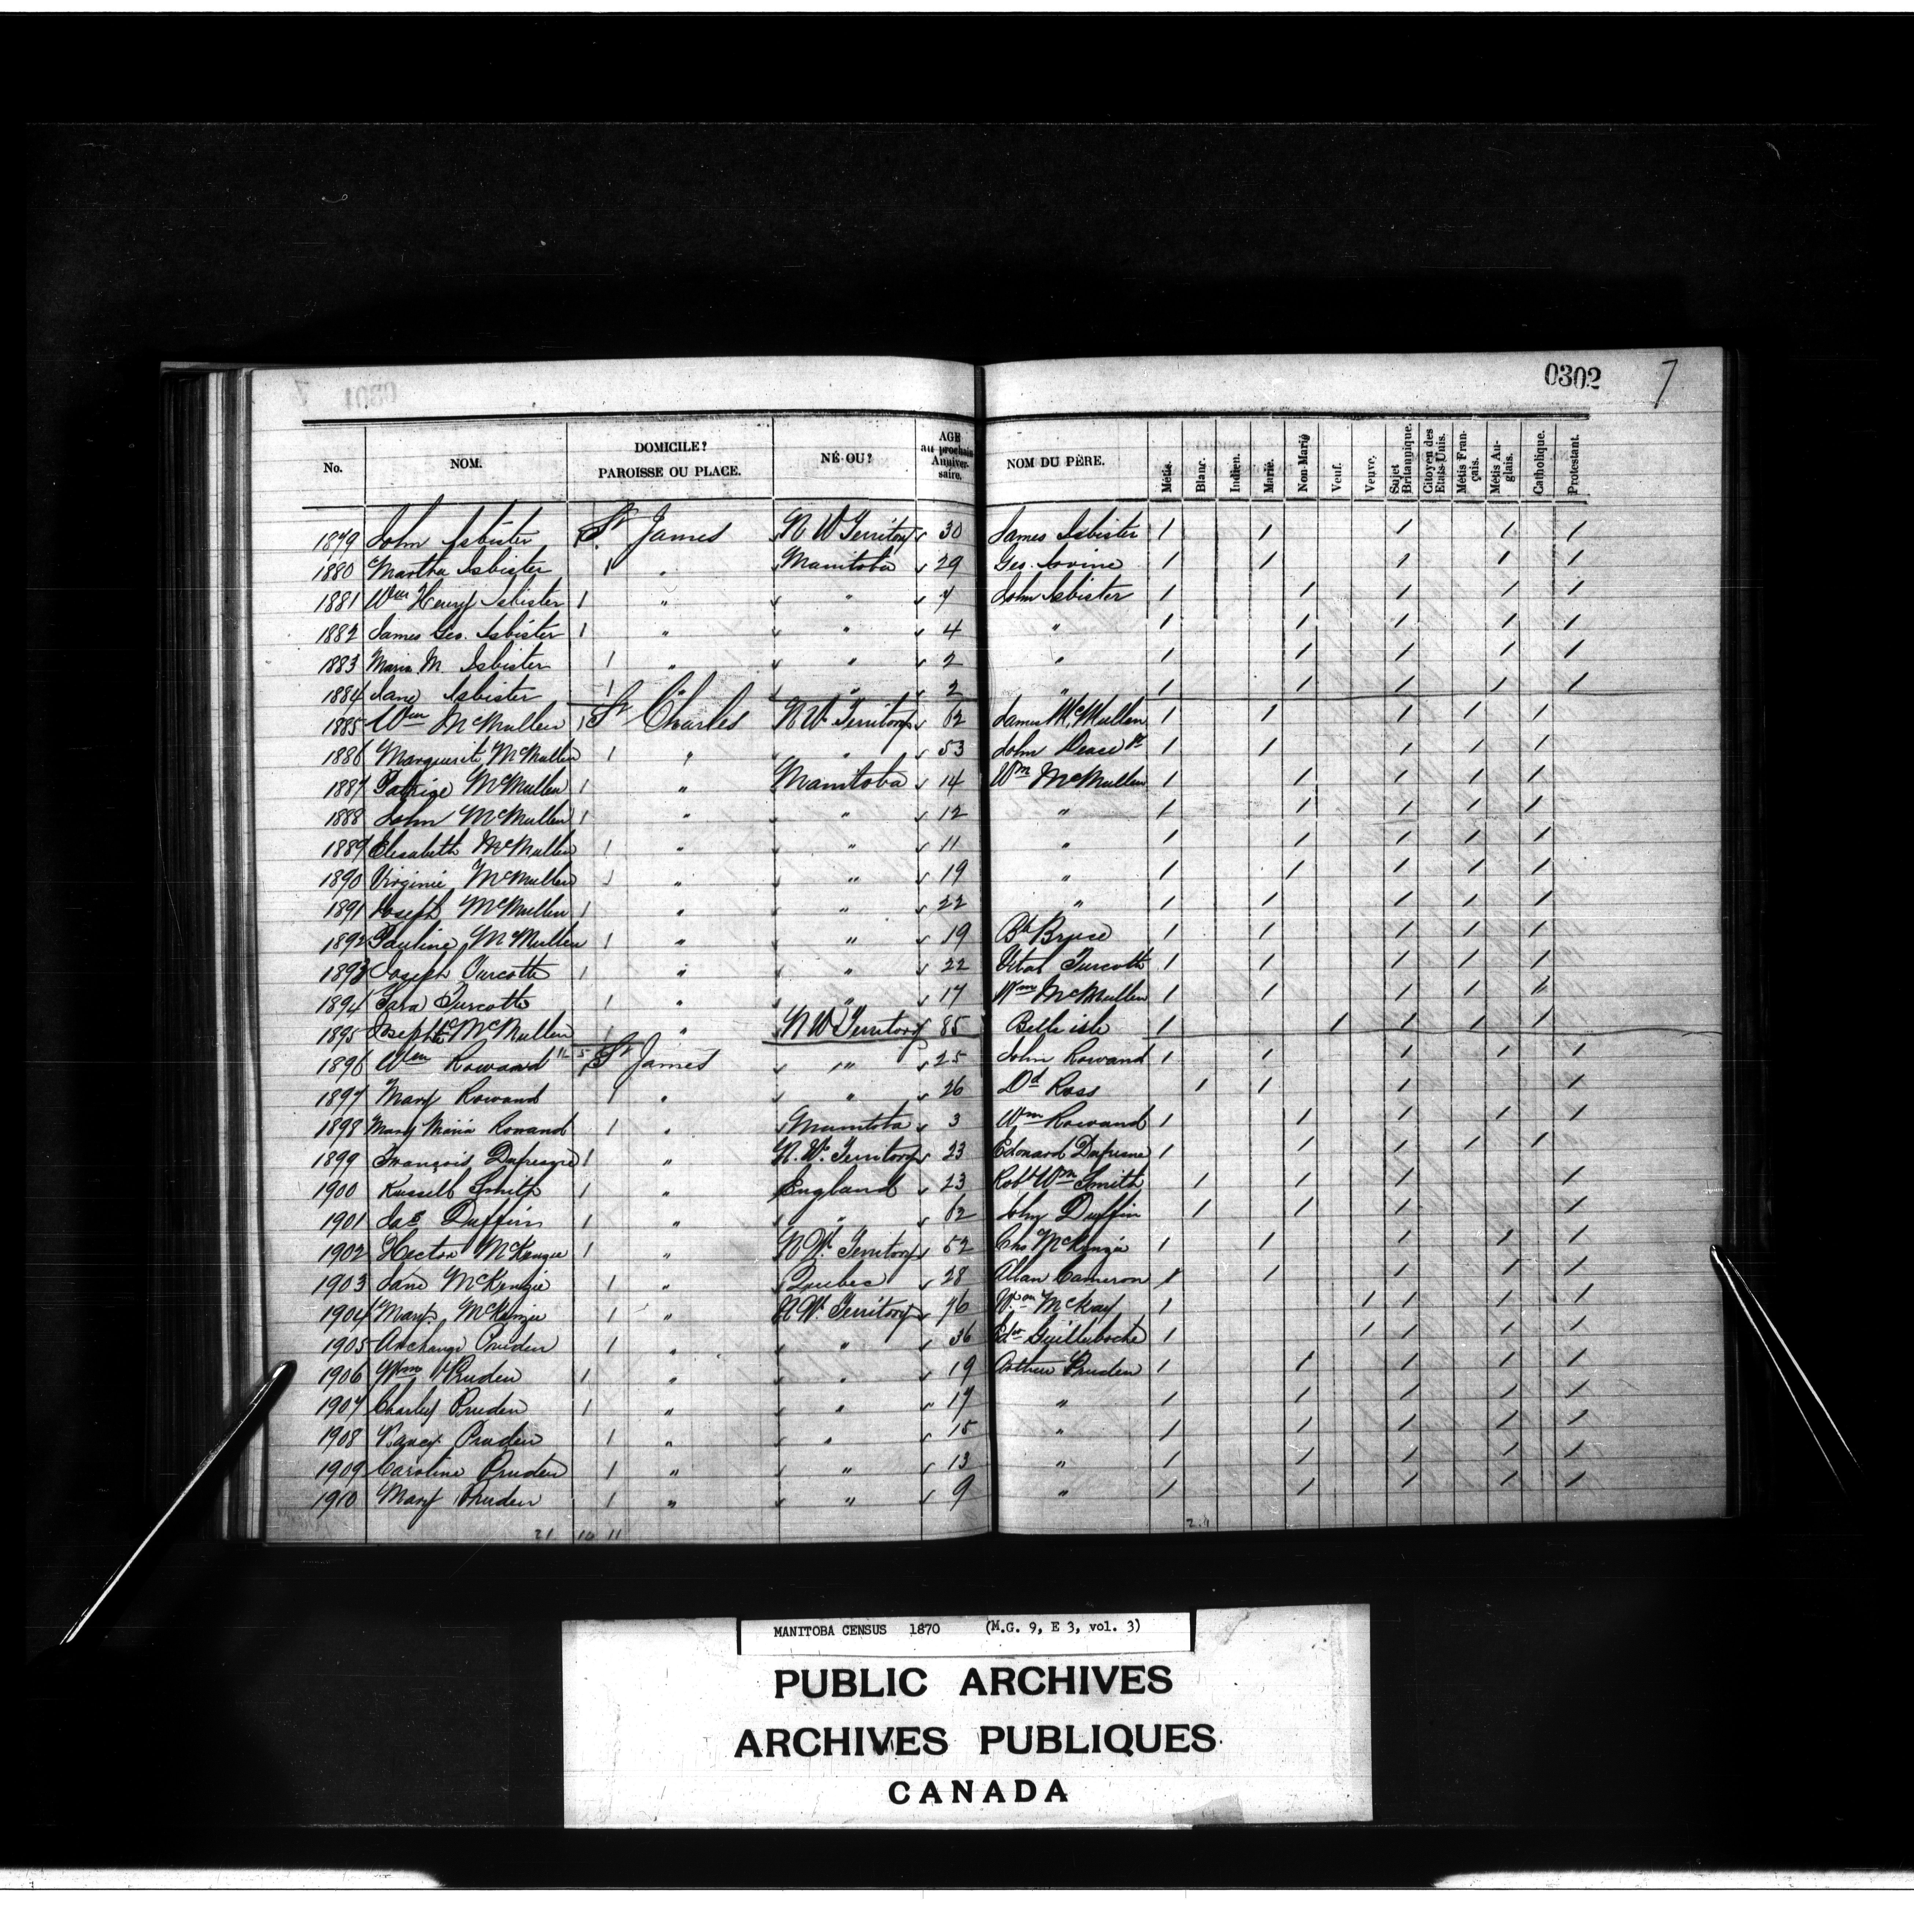 0302 7
No. NOM. DOMICILE? PAROISSE OU PLACE. NÉ OU? AGE au prochain Anniversaire. NOM DU PÈRE. Métis. Blanc. Indien. Marié. Non-Marié Veuf. Veuve. Sujet Britannique. Citoyen des Etats-Unis. Métis Français. Métis Anglais. Catholique. Protestant.
1879 John Isbister 1 St James N W Territory 30 James Isbister / / / / /
1880 Martha Isbister 1 " Manitoba 29 Geo. / / / / /
1881 Wm Henry Isbister 1 " " 7 John Isbister / / / / /
1882 James Geo. Isbister 1 " " 4 " / / / / /
1883 Maria M. Isbister 1 " " 2 " / / / / /
1884 Jane Isbister 1 " " 2 " / / / / /
1885 Wm McMullen 1 St Charles N W Territory 62 James McMullen / / / / /
1886 Marguerite McMullen 1 " " 53 John Dease / / / / /
1887 McMullen 1 " Manitoba 14 Wm McMullen / / / / /
1888 John McMullen 1 " " 12 " / / / / /
1889 Elisabeth McMullen 1 " " 11 " / / / / /
1890 Virginie McMullen 1 " " 19 " / / / / /
1891 Joseph McMullen 1 " " 22 " / / / / /
1892 Pauline McMullen 1 " " 19 Bte Bruce / / / / /
1893 Joseph Turcotte 1 " " 22 Vital Turcotte / / / / /
1894 Sara Turcotte 1 " " 17 Wm McMullen / / / / /
1895 Josephte McMullen 1 " N W Territory 85 Belle isle / / / / /
1896 Wm Rowand 1 St James " 25 John Rowand / / / / /
1897 Mary Rowand 1 " " 26 Dd Ross / / / /
1898 Mary Maria Rowand 1 " Manitoba 3 Wm Rowand / / / / /
1899 François Dufresne 1 " N. W. Territory 23 Edouard Dufresne / / / / /
1900 Russell Smith 1 " England 23 Robt Wm Smith / / / /
1901 Jas Duffin 1 " " 62 John Duffin / / / /
1902 Hector McKenzie 1 " N W. Territory 52 Chs McKenzie / / / / /
1903 Jane McKenzie 1 " Quebec 28 Allan Cameron / / / / /
1904 Mary McKenzie 1 " N W. Territory 76 Wm McKay / / / / /
1905 Archange Pruden 1 " " 36 / / / / /
1906 Wm Pruden 1 " " 19 Arthur Pruden / / / / /
1907 Charley Pruden 1 " " 17 " / / / / /
1908 Nancy Pruden 1 " " 15 " / / / / /
1909 Caroline Pruden 1 " " 13 " / / / / /
1910 Mary Pruden 1 " " 9 " / / / / /
21 10 11
MANITOBA CENSUS 1870 (M.G. 9, E 3, vol. 3)
PUBLIC ARCHIVES
ARCHIVES PUBLIQUES
CANADA